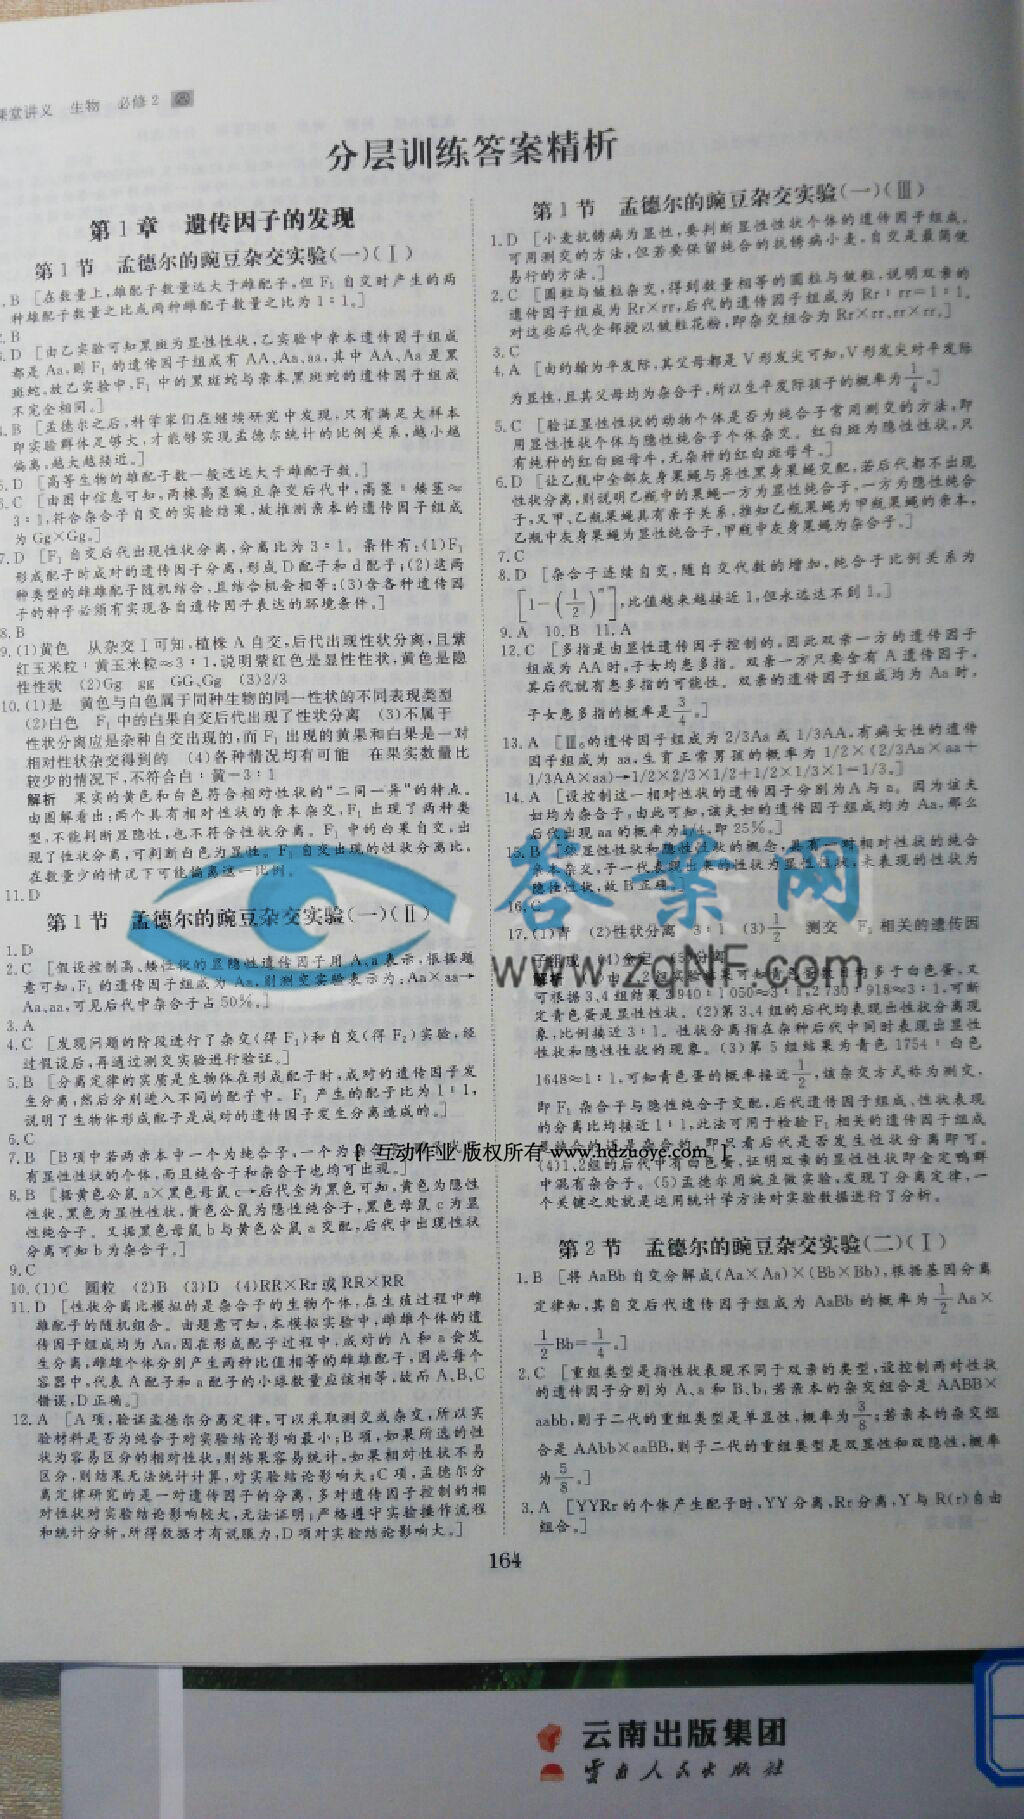 课堂讲义 生物 必修2
分层训练答案精析
第1章 遗传因子的发现
第1节 孟德尔的豌豆杂交实验(一)(Ⅰ)
.B [在数量上,雄配子数量远大于雌配子,但F₁自交时产生的两
种雄配子数量之比或两种雌配子数量之比为1∶1。]
.B
.D [由乙实验可知黑斑为显性性状,乙实验中亲本遗传因子组成
都是Aa,则F₁的遗传因子组成有AA、Aa、aa,其中AA、Aa是黑
斑蛇。故乙实验中,F₁中的黑斑蛇与亲本黑斑蛇的遗传因子组成
不完全相同。]
.B [孟德尔之后,科学家们在继续研究中发现,只有满足大样本
即实验群体足够大,才能够实现孟德尔统计的比例关系,越小越
偏离,越大越接近。]
.D [高等生物的雄配子数一般远远大于雌配子数。]
.C [由图中信息可知,两株高茎豌豆杂交后代中,高茎∶矮茎≈
3∶1,符合杂合子自交的实验结果,故推测亲本的遗传因子组成
为Gg×Gg。]
7.D [F₁自交后代出现性状分离,分离比为3∶1。条件有:(1)F₁
形成配子时成对的遗传因子分离,形成D配子和d配子;(2)这两
种类型的雌雄配子随机结合,且结合机会相等;(3)含各种遗传因
子的种子必须有实现各自遗传因子表达的环境条件。]
8.B
9.(1)黄色 从杂交Ⅰ可知,植株A自交,后代出现性状分离,且紫
红玉米粒∶黄玉米粒≈3∶1,说明紫红色是显性性状,黄色是隐
性性状 (2)Gg gg GG、Gg (3)2/3
10.(1)是 黄色与白色属于同种生物的同一性状的不同表现类型
(2)白色 F₁中的白果自交后代出现了性状分离 (3)不属于
性状分离应是杂种自交出现的,而F₁出现的黄果和白果是一对
相对性状杂交得到的 (4)各种情况均有可能 在果实数量比
较少的情况下,不符合白∶黄=3∶1
解析 果实的黄色和白色符合相对性状的“二同一异”的特点。
由图解看出:两个具有相对性状的亲本杂交,F₁出现了两种类
型,不能判断显隐性,也不符合性状分离。F₁中的白果自交,出
现了性状分离,可判断白色为显性。F₁自交出现的性状分离比,
在数量少的情况下可能偏离这一比例。
11.D
第1节 孟德尔的豌豆杂交实验(一)(Ⅱ)
1.D
2.C [假设控制高、矮性状的显隐性遗传因子用A、a表示,根据题
意可知,F₁的遗传因子组成为Aa,则测交实验表示为:Aa×aa→
Aa、aa,可见后代中杂合子占50%。]
3.A
4.C [发现问题的阶段进行了杂交(得F₁)和自交(得F₂)实验,经
过假设后,再通过测交实验进行验证。]
5.B [分离定律的实质是生物体在形成配子时,成对的遗传因子发
生分离,然后分别进入不同的配子中。F₁产生的配子比为1∶1,
说明了生物体形成配子是成对的遗传因子发生分离造成的。]
6.C
7.B [B项中若两亲本中一个为纯合子,一个为
有显性性状的个体,而且纯合子和杂合子也均可出现。]
8.B [据黄色公鼠a×黑色母鼠c→后代全为黑色可知,黄色为隐性
性状,黑色为显性性状,黄色公鼠为隐性纯合子,黑色母鼠c为显
性纯合子。又据黑色母鼠b与黄色公鼠a交配,后代中出现性状
分离可知b为杂合子。]
9.C
10.(1)C 圆粒 (2)B (3)D (4)RR×Rr或RR×RR
11.D [性状分离比模拟的是杂合子的生物个体,在生殖过程中雌
雄配子的随机组合。由题意可知,本模拟实验中,雌雄个体的遗
传因子组成均为Aa,因在形成配子过程中,成对的A和a会发
生分离,雌雄个体分别产生两种比值相等的雌雄配子,因此每个
容器中,代表A配子和a配子的小球数量应该相等,故而A、B、C
错误,D正确。]
12.A [A项,验证孟德尔分离定律,可以采取测交或杂交,所以实
验材料是否为纯合子对实验结论影响最小;B项,如果所选的性
状为容易区分的相对性状,则结果容易统计,如果相对性状不易
区分,则结果无法统计计算,对实验结论影响大;C项,孟德尔分
离定律研究的是一对遗传因子的分离,多对遗传因子控制的相
对性状对实验结论影响较大,无法证明;严格遵守实验操作流程
和统计分析,所得数据才有说服力,D项对实验结论影响大。]
第1节 孟德尔的豌豆杂交实验(一)(Ⅲ)
1.D [小麦抗锈病为显性,要判断显性性状个体的遗传因子组成,
可用测交的方法,但若要保留纯合的抗锈病小麦,自交是最简便
易行的方法。]
2.C [圆粒与皱粒杂交,得到数量相等的圆粒与皱粒,说明双亲的
遗传因子组成为Rr×rr,后代的遗传因子组成为Rr∶rr=1∶1。
对这些后代全部授以皱粒花粉,即杂交组合为Rr×rr、rr×rr。]
3.C
4.A [由约翰为平发际,其父母都是V形发尖可知,V形发尖对平发际
为显性,且其父母均为杂合子,所以生平发际孩子的概率为1/4。]
5.C [验证显性性状的动物个体是否为纯合子常用测交的方法,即
用显性性状个体与隐性纯合子个体杂交。红白斑为隐性性状,只
有纯种的红白斑母牛,无杂种的红白斑母牛。]
6.D [让乙瓶中全部灰身果蝇与异性黑身果蝇交配,若后代都不出现
性状分离,则说明乙瓶中的果蝇一方为显性纯合子,一方为隐性纯合
子,又甲、乙瓶果蝇具有亲子关系,推知乙瓶果蝇为甲瓶果蝇的亲本,
乙瓶中灰身果蝇为显性纯合子,甲瓶中灰身果蝇为杂合子。]
7.C
8.D [杂合子连续自交,随自交代数的增加,纯合子比例关系为
[1-(1/2)ⁿ],比值越来越接近1,但永远达不到1。]
9.A 10.B 11.A
12.C [多指是由显性遗传因子控制的,因此双亲一方的遗传因子
组成为AA时,子女均患多指。双亲一方只要含有A遗传因子,
其后代就有患多指的可能性。双亲的遗传因子组成均为Aa时,
子女患多指的概率是3/4。]
13.A [Ⅲ₆的遗传因子组成为2/3Aa或1/3AA,有病女性的遗传
因子组成为aa,生育正常男孩的概率为1/2×(2/3Aa×aa+
1/3AA×aa)→1/2×2/3×1/2+1/2×1/3×1=1/3。]
14.A [设控制这一相对性状的遗传因子分别为A与a。因为该夫
妇均为杂合子,由此可知,该夫妇的遗传因子组成均为Aa,那么
后代出现aa的概率为1/4,即25%。]
15.B [依显性性状和隐性性状的概念,具有一对相对性状的纯合
亲本杂交,子一代表现出来的性状为显性性状,未表现的性状为
隐性性状,故B正确。]
16.C
17.(1)青 (2)性状分离 3∶1 (3)1/2 测交 F₁相关的遗传因
子组成 (4)金定 (5)分离
解析 (1)由1、2组实验结果可知青色蛋数目均多于白色蛋,又
可根据3、4组结果2940∶1050≈3∶1,2730∶918≈3∶1,可断
定青色蛋是显性性状。(2)第3、4组的后代均表现出性状分离现
象,比例接近3∶1。性状分离指在杂种后代中同时表现出显性
性状和隐性性状的现象。(3)第5组结果为青色1754∶白色
1648≈1∶1,可知青色蛋的概率接近1/2,该杂交方式称为测交,
即F₁杂合子与隐性纯合子交配,后代遗传因子组成、性状表现
的分离比均接近1∶1,此法可用于检验F₁相关的遗传因子组成
是纯合的还是杂合的,即只看后代是否发生性状分离即可。
(4)1、2组的后代中有白色蛋,证明双亲的显性性状即金定鸭群
中混有杂合子。(5)孟德尔用豌豆做实验,发现了分离定律,一
个关键之处就是运用统计学方法对实验数据进行了分析。
第2节 孟德尔的豌豆杂交实验(二)(Ⅰ)
1.B [将AaBb自交分解成(Aa×Aa)×(Bb×Bb),根据基因分离
定律知,其自交后代遗传因子组成为AaBb的概率为1/2Aa×
1/2Bb=1/4。]
2.C [重组类型是指性状表现不同于双亲的类型,设控制两对性状
的遗传因子分别为A、a和B、b,若亲本的杂交组合是AABB×
aabb,则子二代的重组类型是单显性,概率为3/8;若亲本的杂交组
合是AAbb×aaBB,则子二代的重组类型是双显性和双隐性,概率
为5/8。]
3.A [YYRr的个体产生配子时,YY分离,Rr分离,Y与R(r)自由
组合。]
164
答案网
www.zqNF.com
【互动作业 版权所有 www.hdzuoye.com】
云南出版集团
云南人民出版社